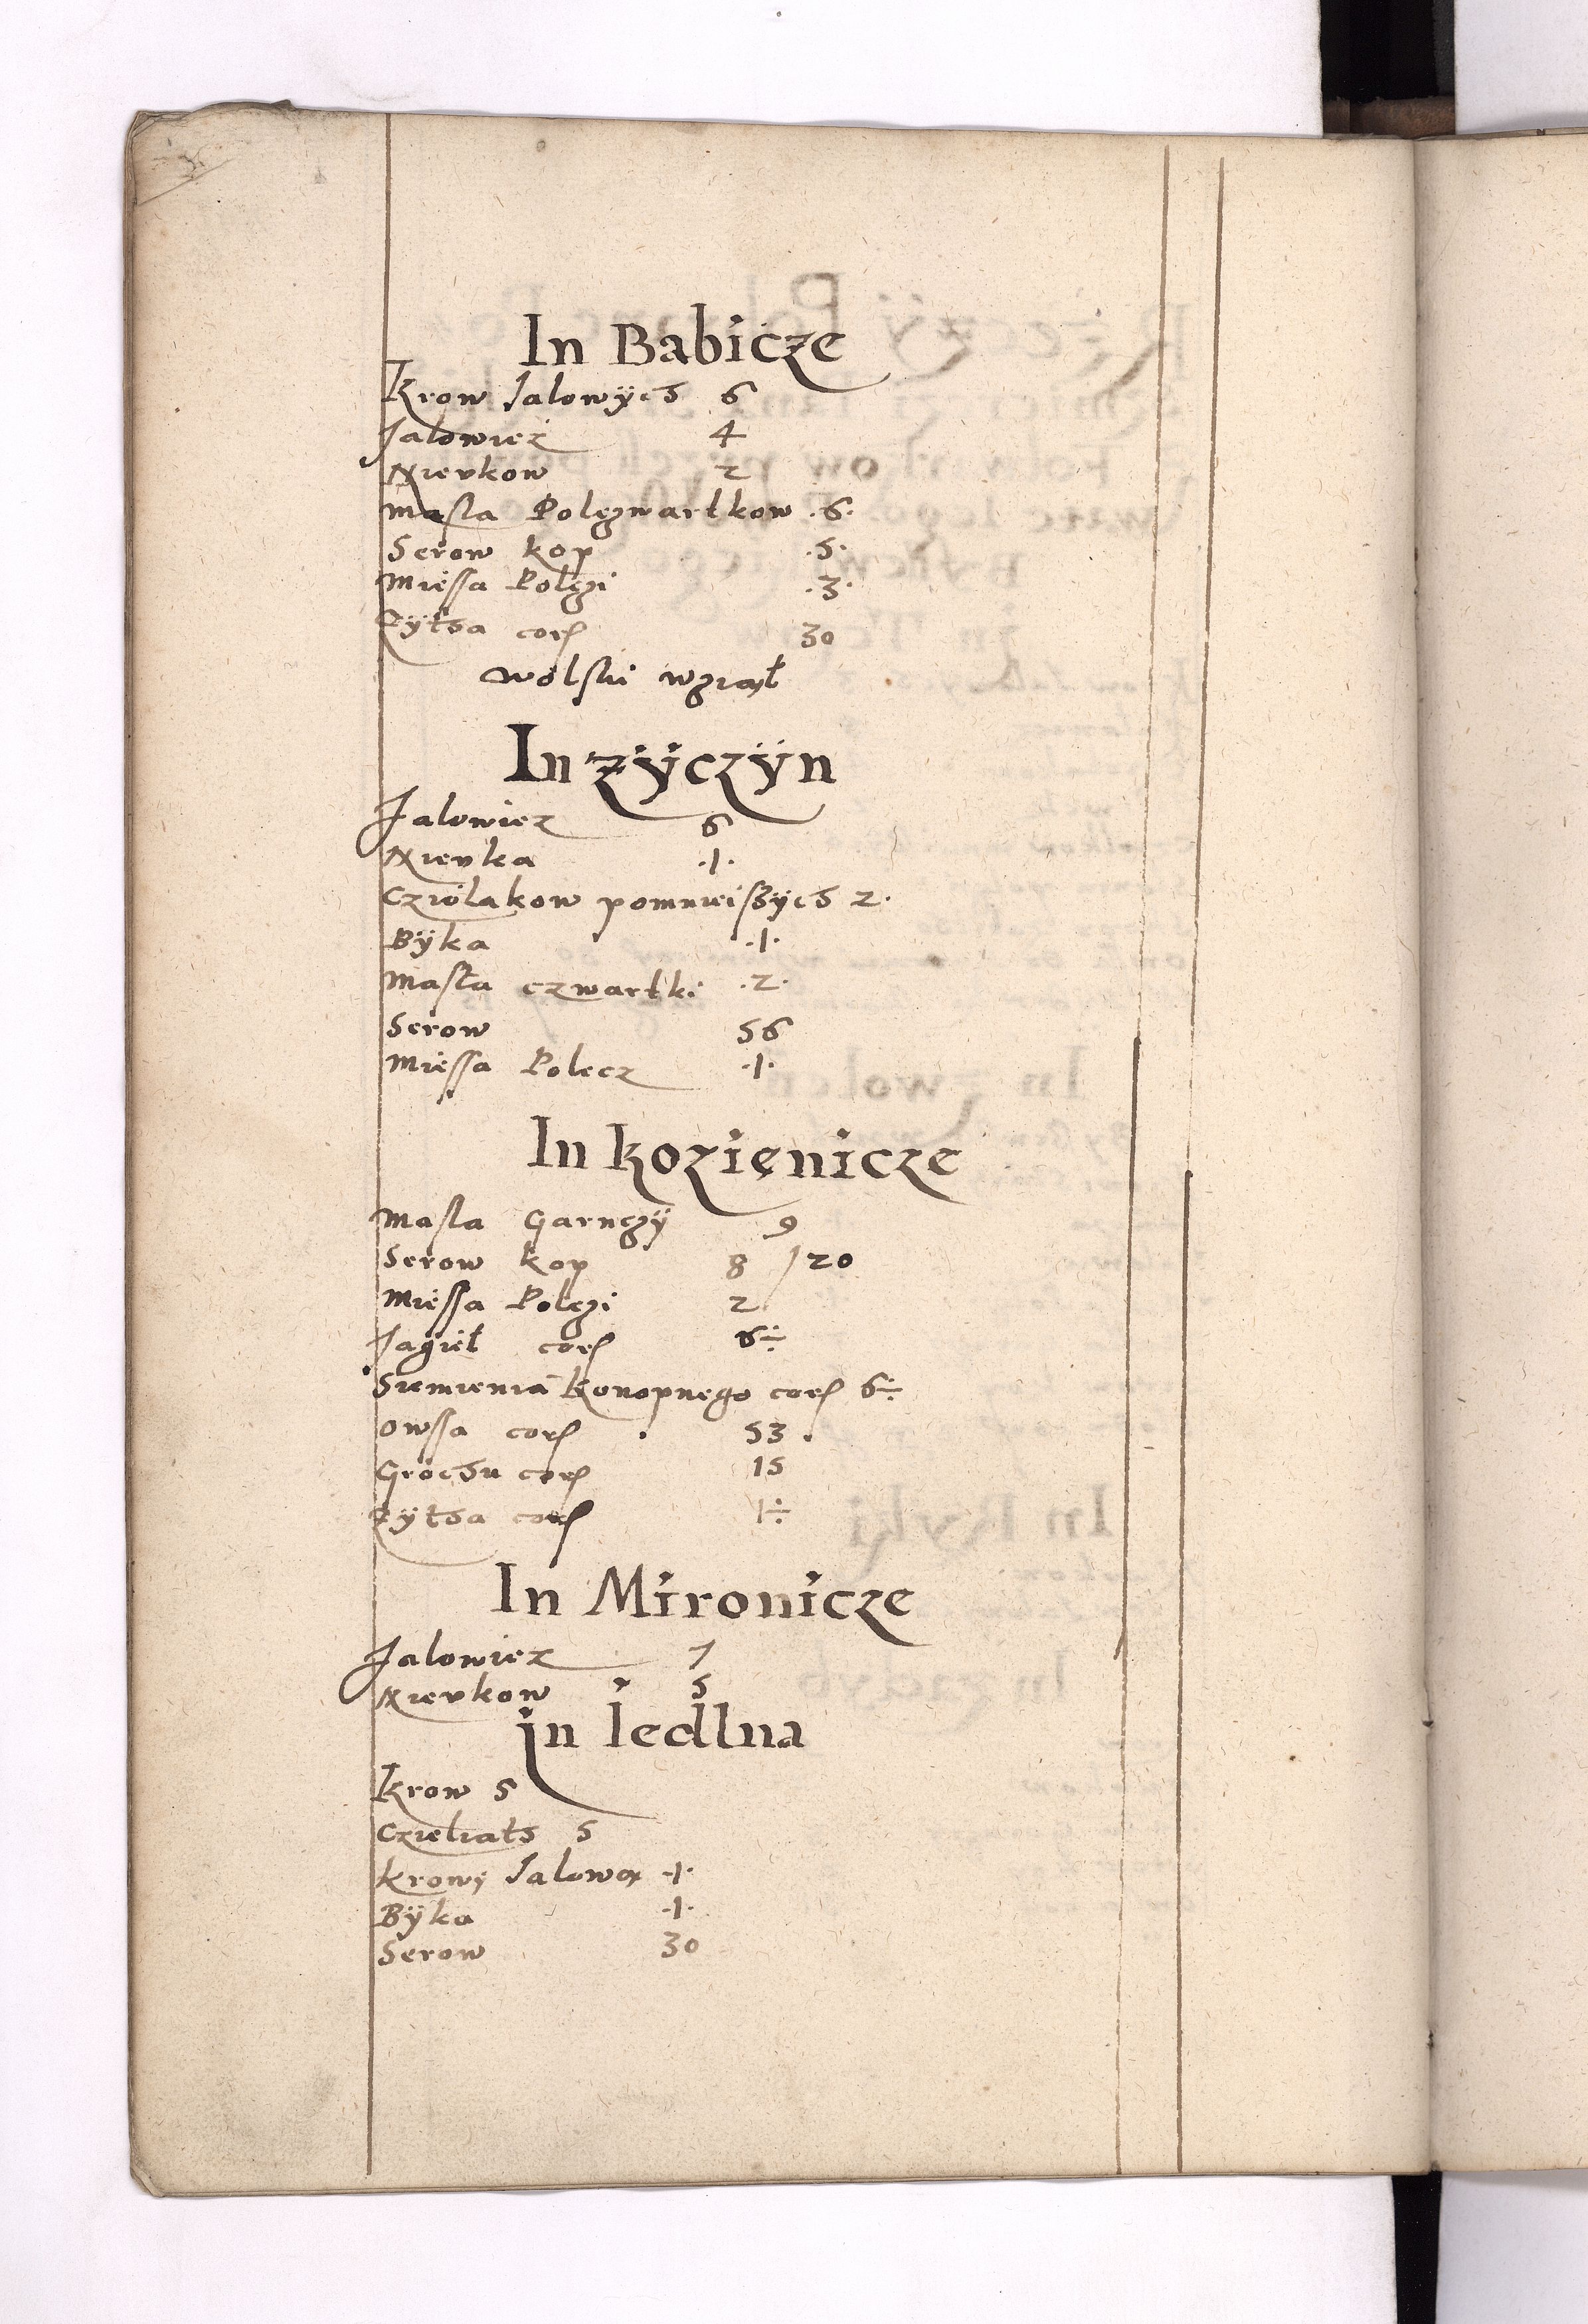 In Babicze
Krow Jalowÿch 6
Jalowiez 4
Nieukow 2
Masla Polęzwartkow .6.
Serow kop .5.
Mięssa Polęzi .3.
Zÿtha corſ 30
wolski wziął
In Zÿczÿn
Jalowiez 6
Nieuka .1.
Cziolakow pomnieiſzÿch 2.
Bÿka .1.
Masła czwartki .2.
Serow 56
Mięssa Polecz .1.
In Kozięnicze
Masla Garnczÿ 9
Serow kop 8 /20
Miessa Polęzi 2
Jagieł corſ 6÷
Siemienia Konopnego corſ 6÷
Owssa corſ 53.
Grochu corſ 15
Zytha corſ 1÷
In Mironicze
Jalowiez 7
Nieukow 5
in Iedlna
Krow 5
Czieliath 5
Krowę Jalową .1.
Bÿka .1.
Serow 30